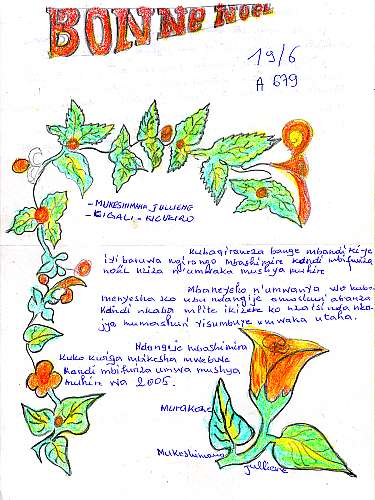 BONNE NOEL
19/6
A 679
- MUKESHIMANA JULLIENE
- KIGALI - KICUKIRO
Kubagirancza bange mbandikiye
iyi baruwa ngirango mbashimire kandi mbifurize
noël nziza n'umwaka mushya muhire
Mbaneyeho n'umwanya wo kuba
menyesha ko ubu ndangije amashuri abanza
kandi nkaba mfite ikizere ko nzatsinda nko
jya mumashuri yisumbuye umwaka utaha.
Ndangije mbashimira
kuko kwiga mbikesha mwebwe
kandi mbifuriza umwa mushya
muhire wa 2005.
Murakoze
Mukeshimana
julliene